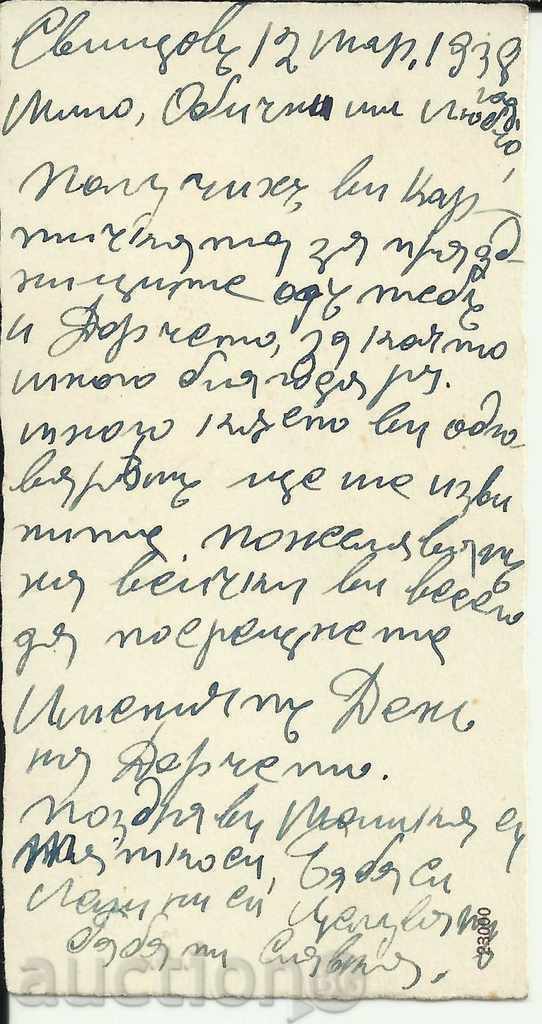 Свищовъ 12 Мар. 1939
год
Мило, Обични ми Любчо,
Получихъ ви кар-
тичката за празд-
ниците одъ тебъ
и Дорчето, за което
много благодаря.
много късно ви одго-
варямъ ще ме изви
ните. пожелавамъ
на всички ви весело
да посрещнете
Имениятъ День
на Дорчето.
поздрави Майка си
Татко си, Баба си
си целувамъ
баба ти Славка.
23000
auction.BG